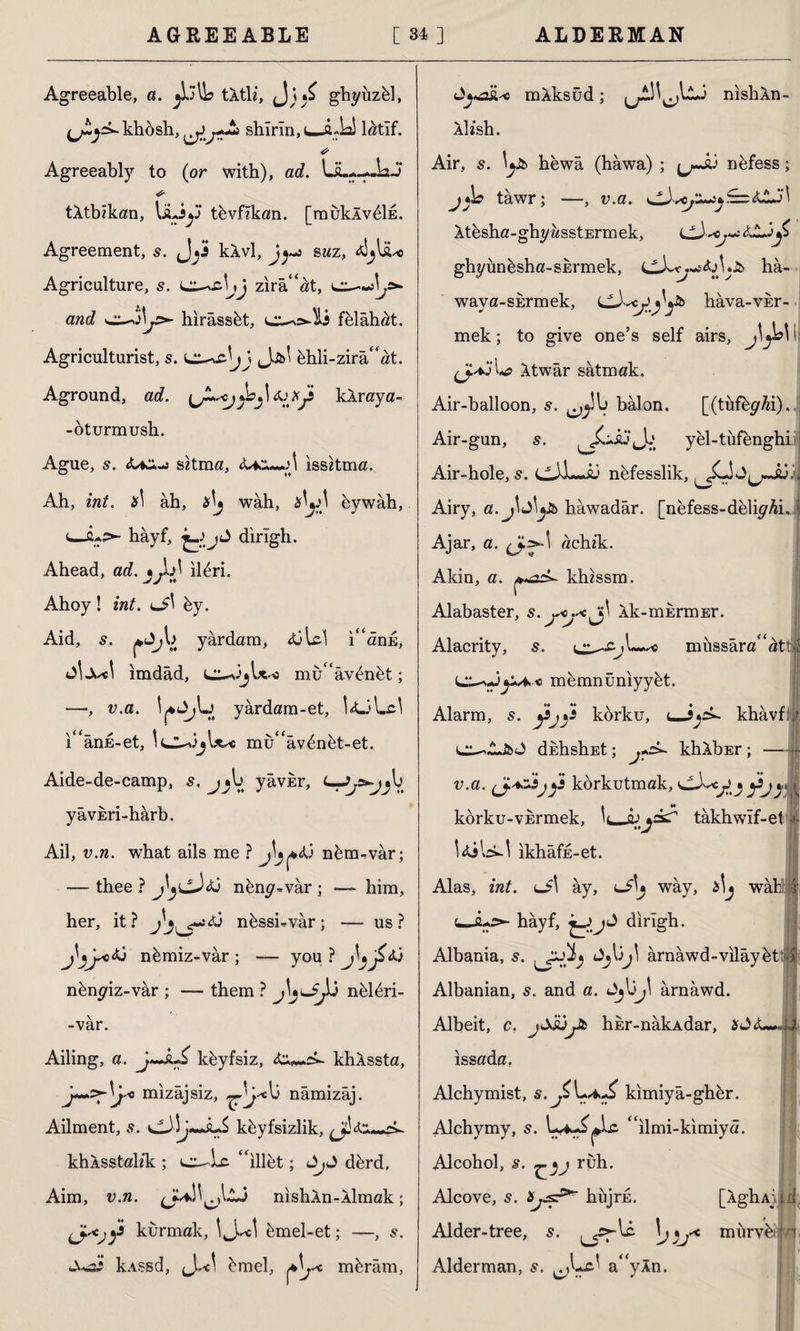 AGREEABLE [ 34 ] ALDERMAN
Agreeable, a. طاتلی tΛtli, گوزل ghyùzèl,
خوش khòsh, شیرین shīrīn, لطیف látīf.
Agreeably to (or with), ad. تطبیقا
tΛtbīkan, توفیقا tèvfīkan. [mūkΛvélE.
Agreement, s. قول kΛvl, سوز suz, مقاوله
Agriculture, s. زراعت zirā“át, حراست
and حراثت hirāssèt, فلاحت fèlāhát.
Agriculturist, s. اهل زراعت èhli-zirā“át.
Aground, ad. قرایه اوطورمش kΛraya-
-òturmush.
Ague, s. ستمه sìtma, اسستمه issìtma.
Ah, int. آه àh, واه wàh, ایواه èywàh,
حیف hàyf, دریغ dirīgh.
Ahead, ad. ایلرو iléri.
Ahoy ! int. ای èy.
Aid, s. یاردم yàrdam, اعانه i“ānE,
امداد imdād, معاونت mū“āvénèt;
—, v.a. یاردم ا yàrdam-et, اعانه ا
i“ānE-et, معاونت ا mū“āvénèt-et.
Aide-de-camp, s. یاور yāvEr, یاور حرب
yāvEri-hàrb.
Ail, v.n. what ails me ? نه‌م وار nèm-vàr;
— thee ? نه‌ك وار nèng-vàr ; — him,
her, it ? نه‌سی وار nèssi-vàr ; — us ?
نه‌مز وار nèmiz-vàr ; — you ? نه‌کز وار
nèngiz-vàr ; — them ? نه‌لری وار nèléri-
-vàr.
Ailing, a. کیفسز kèyfsiz, خسته khΛssta,
مزاجسز mizājsiz, نامزاج nāmizāj.
Ailment, s. کیفسزلك kèyfsizlik, خسته‌لق
khΛsstalík ; علت “illèt ; درد dèrd.
Aim, v.n. نشان المق nishΛn-Λlmak ;
قورمق kūrmak, امل ا èmel-et ; —, s.
قصد kAssd, امل èmel, مرام mèrām,
مقصود mΛksūd ; نشان الش nishΛn-
Λlísh.
Air, s. هوا hèwā (hàwa) ; نفس nèfess ;
طور tàwr ; —, v.a. آتشه کوسترمك
Λtèsha-ghyùsstErmek, کونشه سرمك
ghyùnèsha-sErmek, هوایه سرمك hà-
waya-sErmek, هوا ویرمك hàva-vEr-
mek ; to give one’s self airs, اطوار
صاتمق Λtwār sàtmak.
Air-balloon, s. بالون bàlon. [(tùfèghi).
Air-gun, s. یل تفنکی yèl-tùfènghi
Air-hole, s. نفسلك nèfesslik, نفس دلکی
Airy, a. هوادار hàwadār. [nèfess-dèlighi.
Ajar, a. آچق àchík.
Akin, a. خصم khíssm.
Alabaster, s. اق مرمر Λk-mErmEr.
Alacrity, s. مسارعت mūssāra“àt
ممنونیت mèmnūniyyèt.
Alarm, s. قورقو kòrku, خوف khàvf
دهشت dEhshEt ; خبر khΛbEr ; —
v.a. قورقوتمق kòrkutmak, قورقو ویرمك
kòrku-vErmek, تخویف ا takhwīf-et
اخافه ا ikhāfE-et.
Alas, int. آی ày, وای wày, واه wàh
حیف hàyf, دریغ dirīgh.
Albania, s. ارناود ولایتی àrnàwd-vìlāyèt
Albanian, s. and a. ارناود àrnàwd.
Albeit, c. هرنقدر hEr-nàkAdar, ایسه‌ده
issada.
Alchymist, s. کیمیاکر kìmiyā-ghèr.
Alchymy, s. علم کیمیا “ilmi-kìmiyā.
Alcohol, s. روح rūh.
Alcove, s. حجره hùjrE. [ΛghAj
Alder-tree, s. مرور اغاجی mürvè
Alderman, s. اعیان a“yΛn.